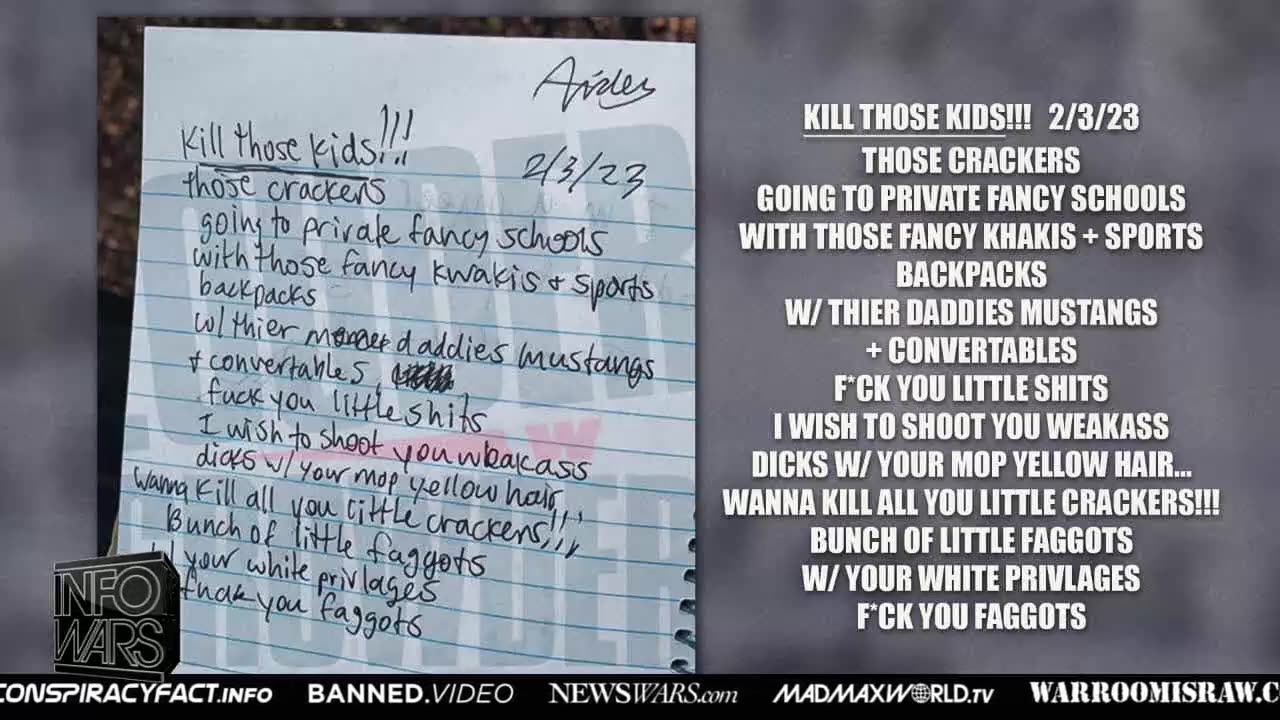 Aiden
Kill those kids!!!
2/3/23
those crackers
going to private fancy schools
with those fancy kwakis + sports
backpacks
w/ thier daddies mustangs
+ convertables
fuck you little shits
I wish to shoot you weakass
dicks w/ your mop yellow hair
wanna kill all you little crackers!!!
Bunch of little faggots
your white privlages
fuck you faggots
KILL THOSE KIDS!!! 2/3/23
THOSE CRACKERS
GOING TO PRIVATE FANCY SCHOOLS
WITH THOSE FANCY KHAKIS + SPORTS
BACKPACKS
W/ THIER DADDIES MUSTANGS
+ CONVERTABLES
F*CK YOU LITTLE SHITS
I WISH TO SHOOT YOU WEAKASS
DICKS W/ YOUR MOP YELLOW HAIR...
WANNA KILL ALL YOU LITTLE CRACKERS!!!
BUNCH OF LITTLE FAGGOTS
W/ YOUR WHITE PRIVLAGES
F*CK YOU FAGGOTS
INFO
WARS
CONSPIRACYFACT.INFO BANNED.VIDEO NEWSWARS.com MADMAXWORLD.TV WARROOMISRAW.C